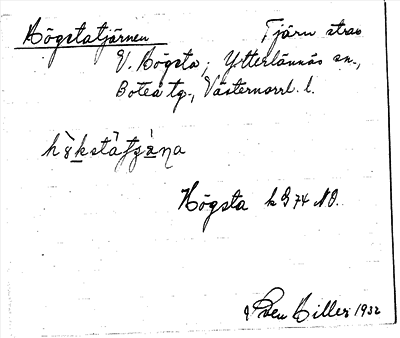 Högstatjärnen Tjärn strax
V. Högsta, Ytterlännäs sn.,
Boteå tg., Västernorrl. l.
Högsta k 974 NO.
Sven Hiller 1932